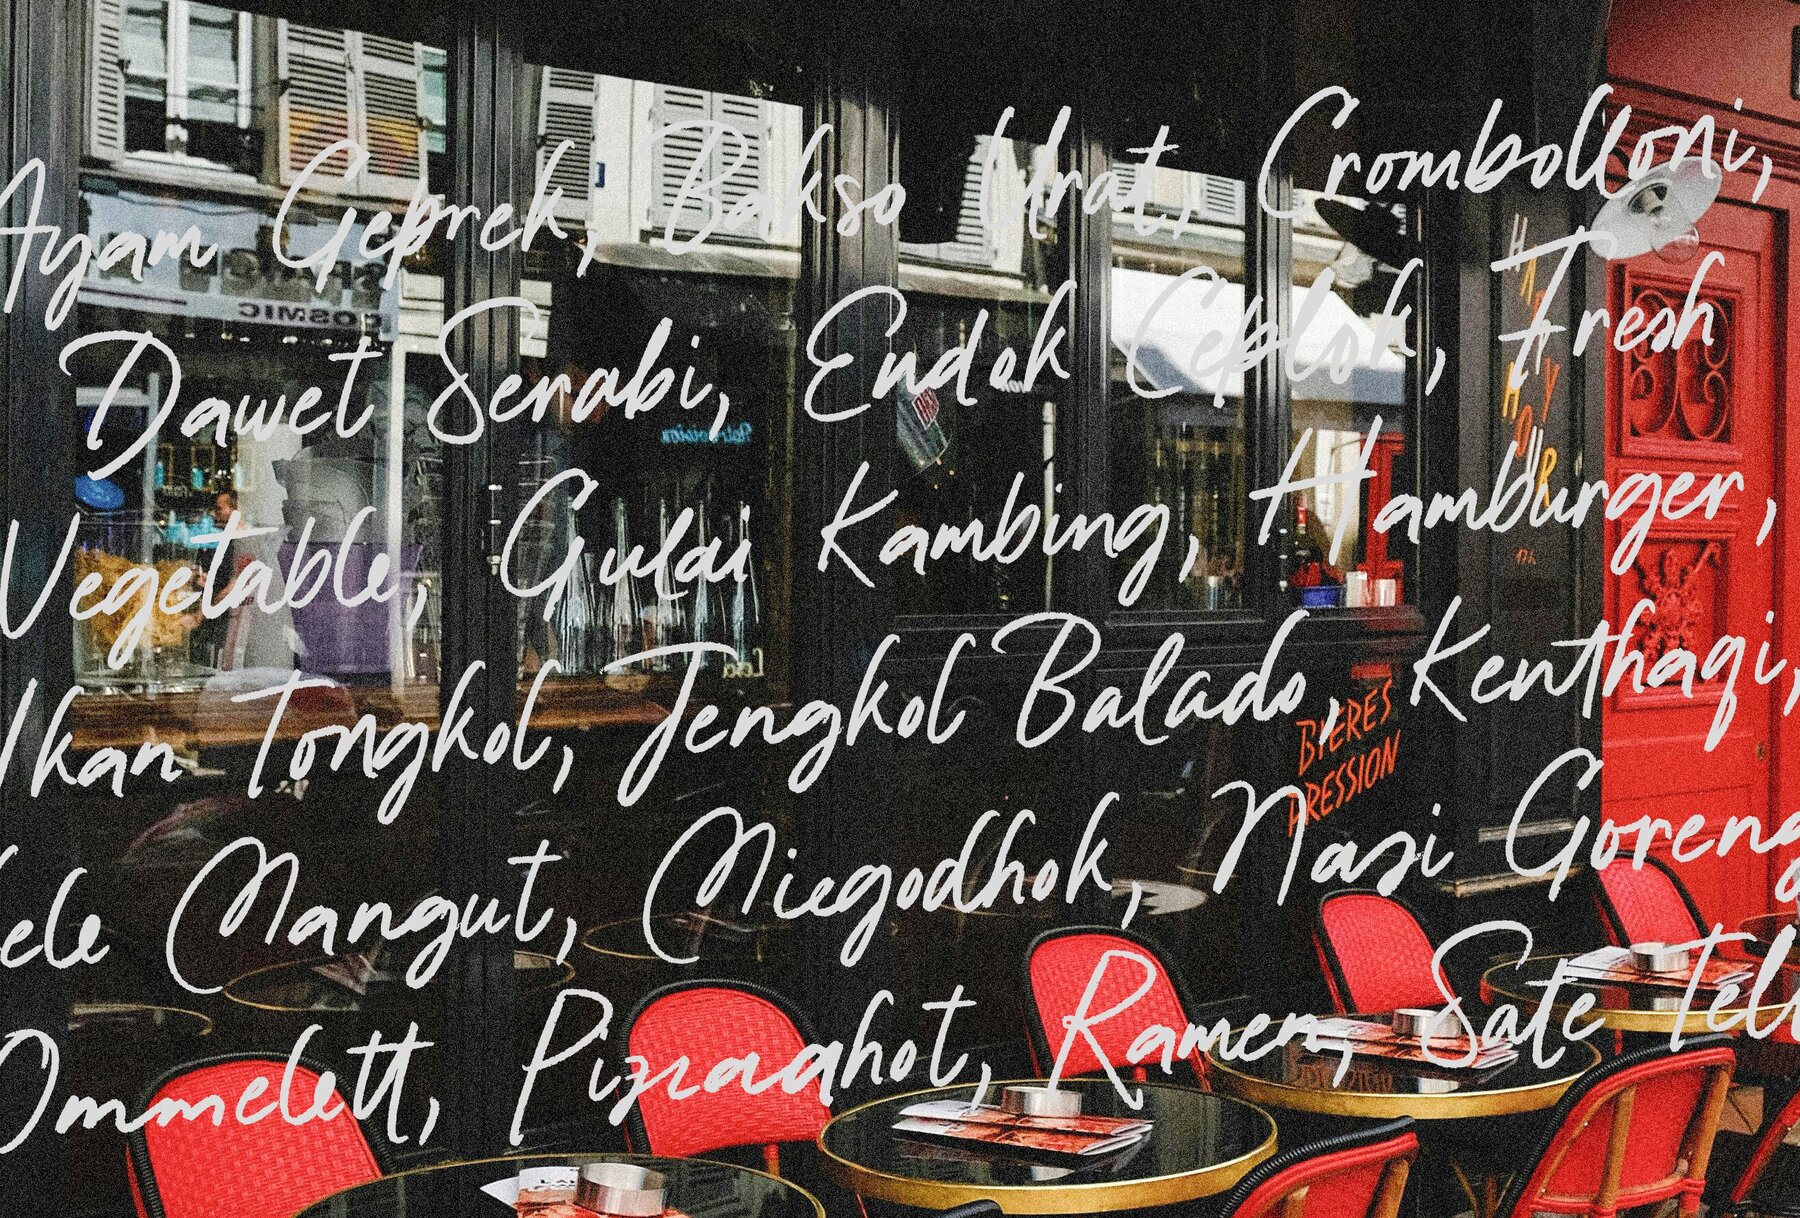 Ayam Geprek, Bakso Urat, Crombolloni,
Dawet Serabi, Endok Ceplok, Fresh
Vegetable, Gulai Kambing, Hamburger,
Ikan Tongkol, Jengkol Balado, Kenthaqi,
ele Mangut, Miegodhok, Nasi Goreng
Ommelett, Pizzaahot, Ramen, Sate Tell
HAPPY
HOUR
BIERES
PRESSION
COSMIC